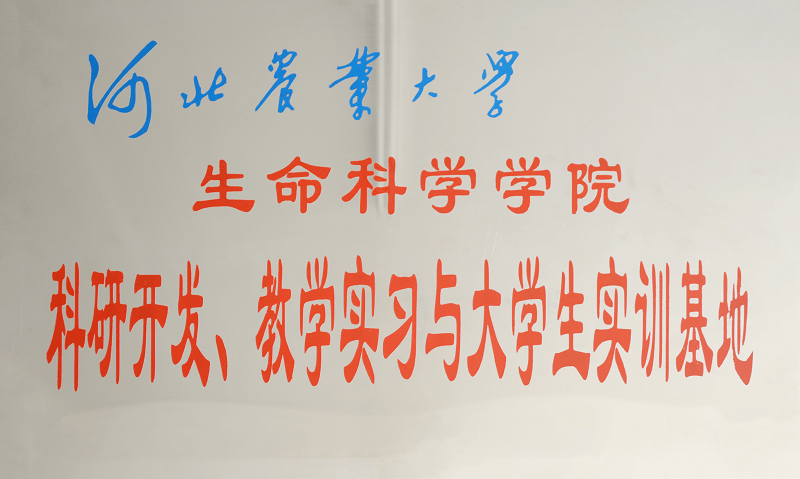 河北农业大学
生命科学学院
科研开发、教学实习与大学生实训基地